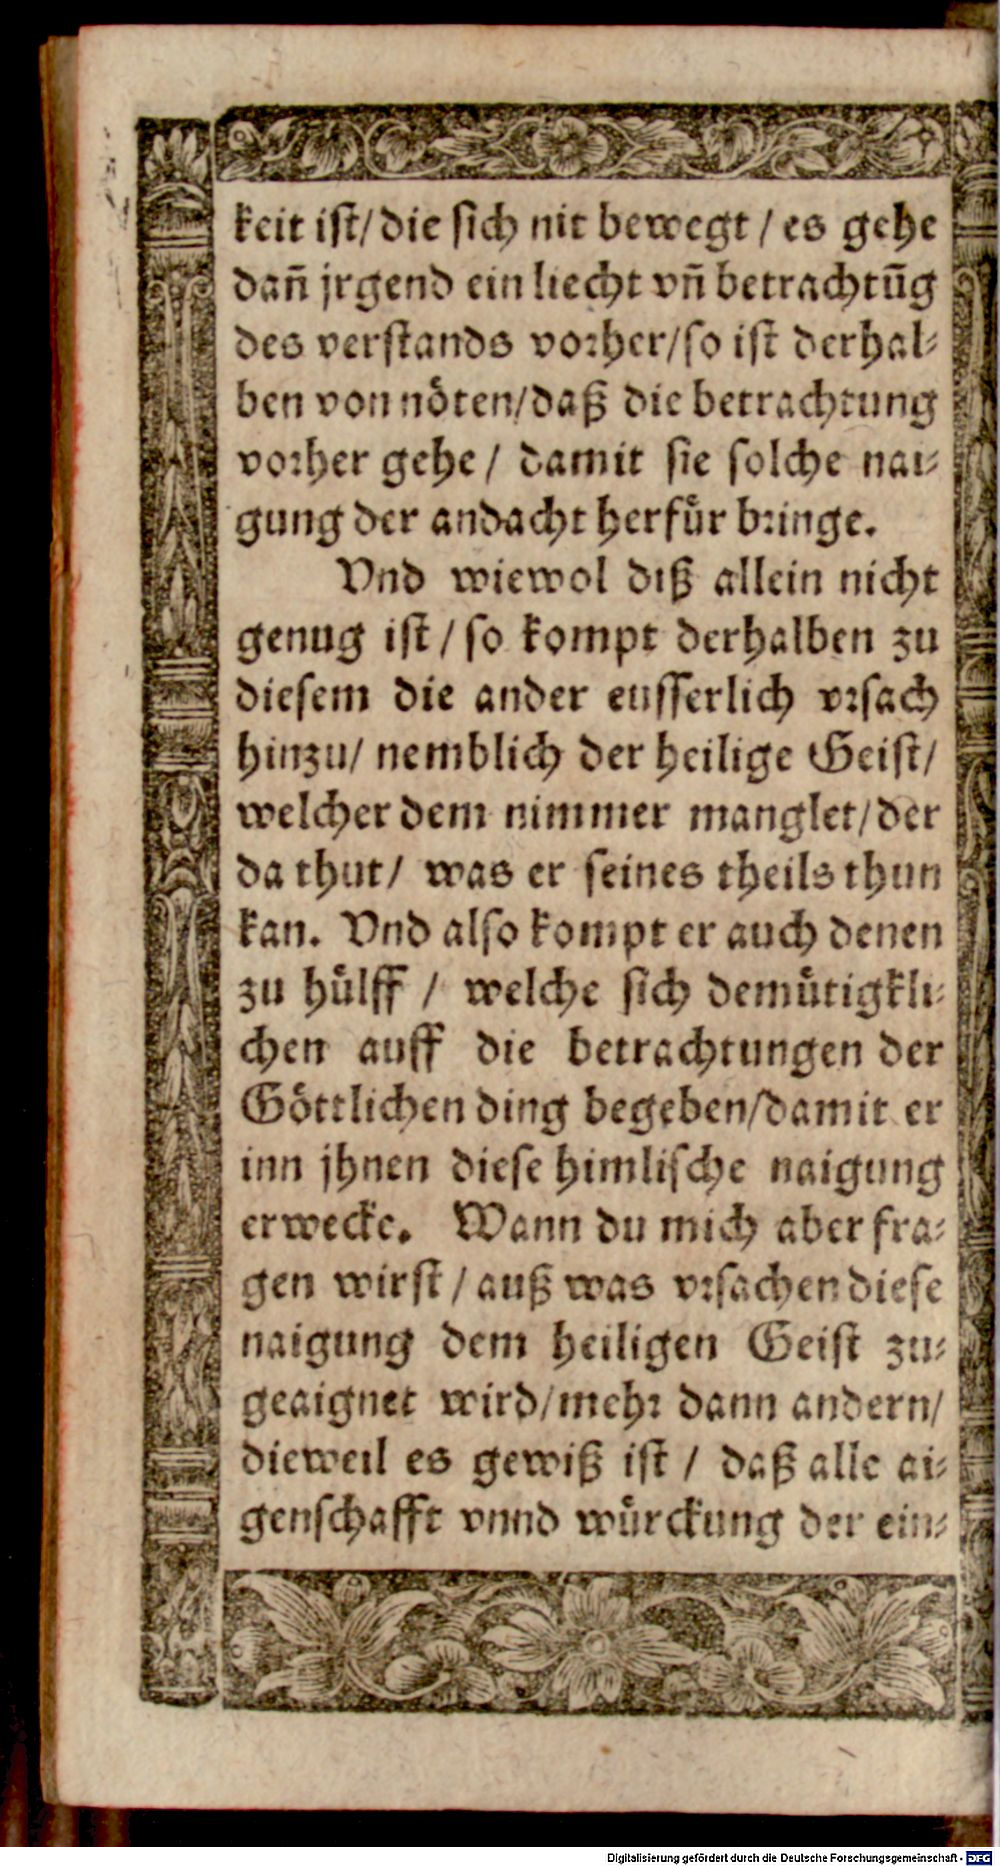 keit ist/ die sich nit bewegt / es gehe
dañ jrgend ein liecht vñ betrachtūg
des verstands vorher/so ist derhal-
ben von nöten/daß die betrachtung
vorher gehe / damit sie solche nai-
gung der andacht herfür bringe.
Vnd wiewol diß allein nicht
genug ist / so kompt derhalben zu
diesem die ander eusserlich vrsach
hinzu/ nemblich der heilige Geist/
welcher dem nimmer manglet/der
da thut/ was er seines theils thun
kan. Vnd also kompt er auch denen
zu hülff / welche sich demütigkli-
chen auff die betrachtungen der
Göttlichen ding begeben/damit er
inn jhnen diese himlische naigung
erwecke. Wann du mich aber fra-
gen wirst / auß was vrsachen diese
naigung dem heiligen Geist zu-
geaignet wird/mehr dann andern/
dieweil es gewiß ist / daß alle ai-
genschafft vnnd würckung der ein-
Digitalisierung gefördert durch die Deutsche Forschungsgemeinschaft - DFG